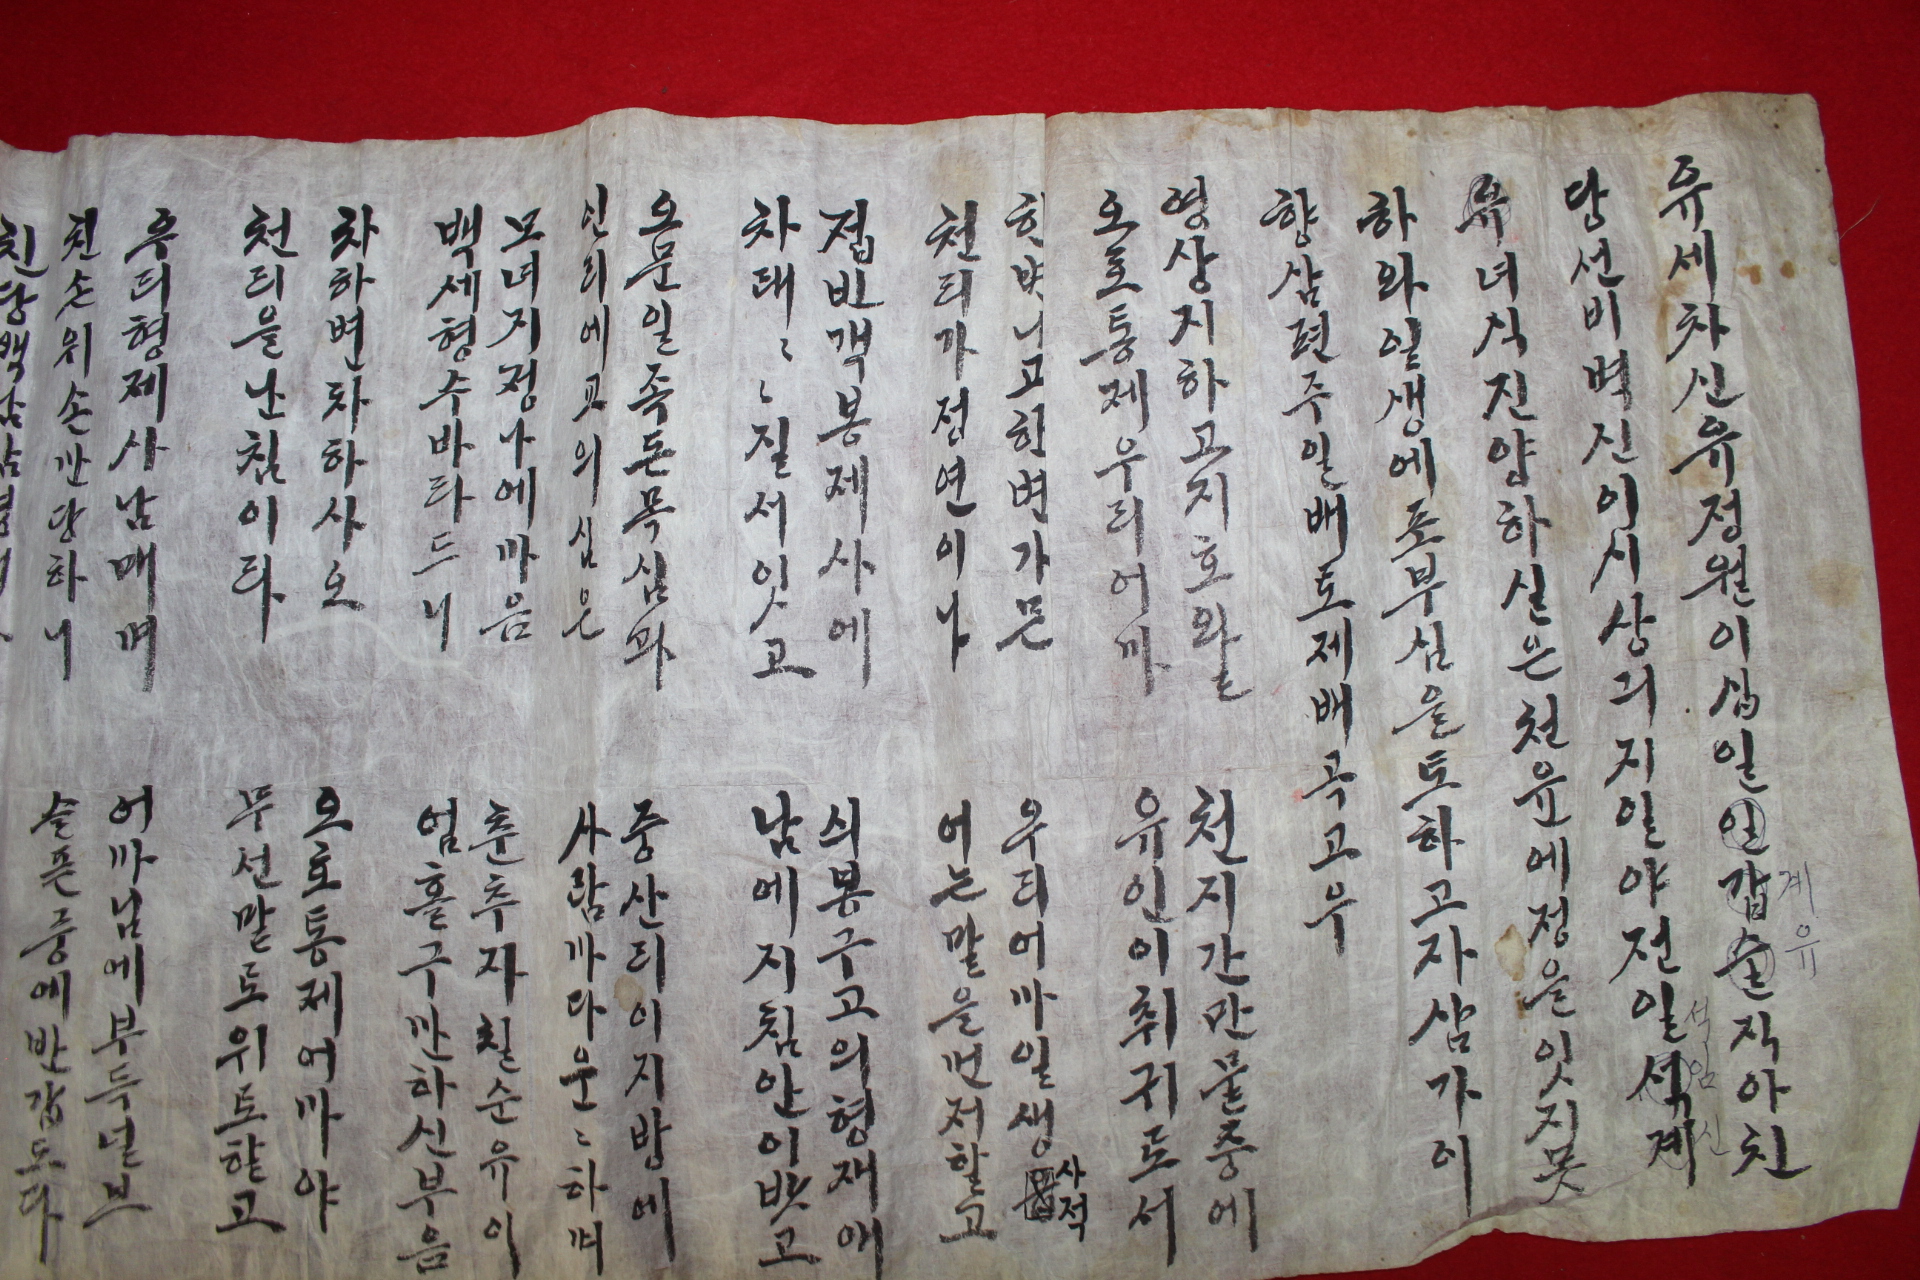 유세차신유정월이십일일갑슐직아친
계유
당선비벽진이시상긔지일야전일석졔
석임신
유녀식진양하실은천윤에정을잇지못
하와일생에포부심을토하고자삼가이
향삼편주일배토제배곡고우
영상지하고지호와ᄅ
오호통제우리어마
천지간만물중에
유인이취귀도서
한변가믄
천티가정연이나
우리어마일생
사적
어는말을먼저할고
접빈객봉제사에
차대ᄂᄂ질서잇고
쇠봉구고의형재애
남에지침안이밧고
오문일족돈목심과
인리에교의심은
중산티이지방에
사람마다운ᄂ하며
모녀지정나에마음
백세형수바라드니
춘추자칠순유이
엄홀구만하신부음
차하변차하사오
천티을난침이라
오호통제어마야
무선말도위토할고
우리형제사남매며
친손위손만당하니
어마님에부득널브
슬픈중에반갑도다